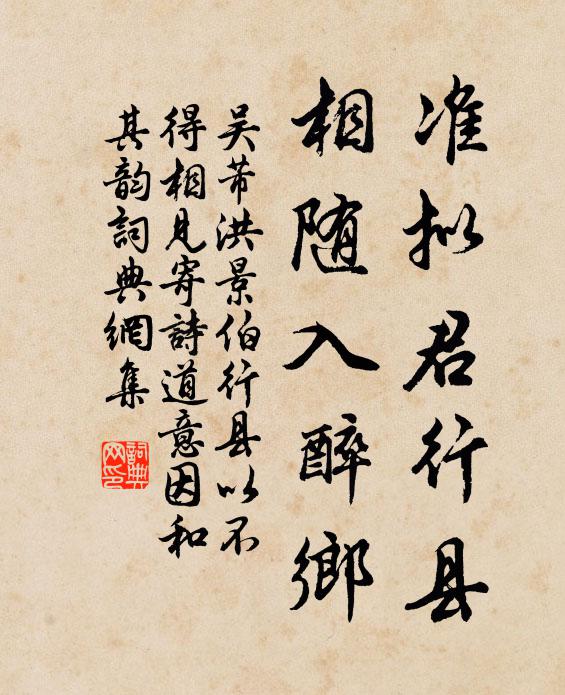 准拟君行县
相随入醉鄉
吴芾洪景伯行县以不
得相見寄詩道意因和
其韵詞典網集
詞典
网印